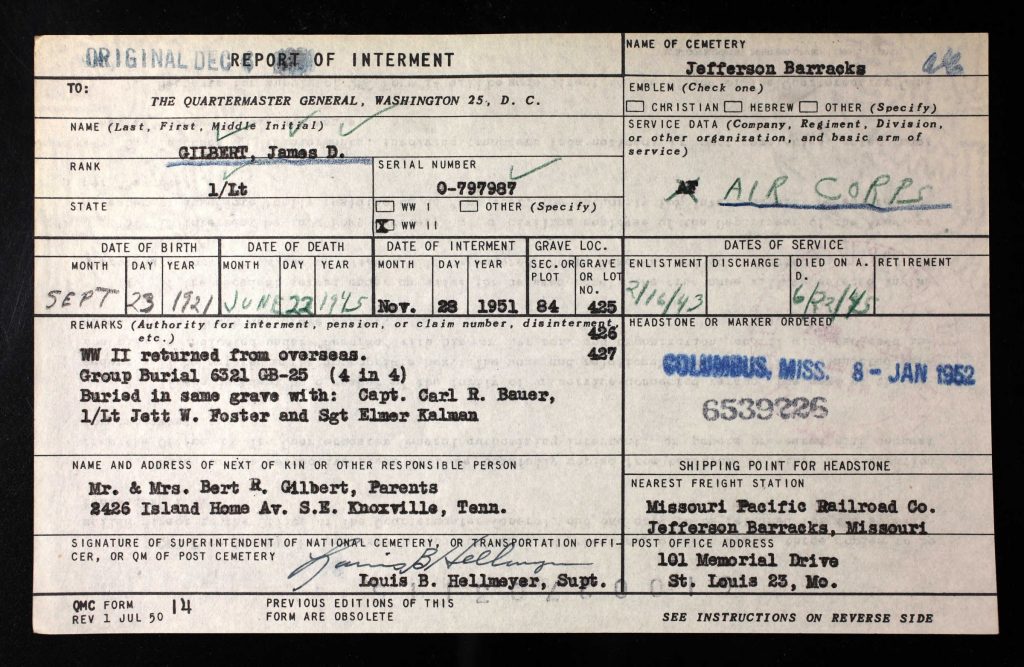 ORIGINAL DEC
REPORT OF INTERMENT
NAME OF CEMETERY
Jefferson Barracks
TO:
THE QUARTERMASTER GENERAL, WASHINGTON 25, D. C.
EMBLEM (Check one)
CHRISTIAN HEBREW OTHER (Specify)
NAME (Last, First, Middle Initial)
GILBERT, James D.
SERVICE DATA (Company, Regiment, Division,
or other organization, and basic arm of
service)
AIR CORPS
RANK
1/Lt
SERIAL NUMBER
O-797987
STATE
WW I OTHER (Specify)
X WW II
DATE OF BIRTH DATE OF DEATH DATE OF INTERMENT GRAVE LOC. DATES OF SERVICE
MONTH DAY YEAR MONTH DAY YEAR MONTH DAY YEAR SEC. OR PLOT GRAVE OR LOT NO. ENLISTMENT DISCHARGE DIED ON A. D. RETIREMENT
SEPT 23 1921 JUNE 22 1945 Nov. 28 1951 84 425 2/16/43 6/22/45
426
427
REMARKS (Authority for interment, pension, or claim number, disinterment,
etc.)
WW II returned from overseas.
Group Burial 6321 GB-25 (4 in 4)
Buried in same grave with: Capt. Carl R. Bauer,
1/Lt Jett W. Foster and Sgt Elmer Kalman
HEADSTONE OR MARKER ORDERED
COLUMBUS, MISS. 8 - JAN 1952
6539226
NAME AND ADDRESS OF NEXT OF KIN OR OTHER RESPONSIBLE PERSON
Mr. & Mrs. Bert R. Gilbert, Parents
2426 Island Home Av. S.E. Knoxville, Tenn.
SHIPPING POINT FOR HEADSTONE
NEAREST FREIGHT STATION
Missouri Pacific Railroad Co.
Jefferson Barracks, Missouri
SIGNATURE OF SUPERINTENDENT OF NATIONAL CEMETERY, OR TRANSPORTATION OFFI-
CER, OR QM OF POST CEMETERY
Louis B Hellmeyer
Louis B. Hellmeyer, Supt.
POST OFFICE ADDRESS
101 Memorial Drive
St. Louis 23, Mo.
QMC FORM 14
REV 1 JUL 50
PREVIOUS EDITIONS OF THIS
FORM ARE OBSOLETE
SEE INSTRUCTIONS ON REVERSE SIDE